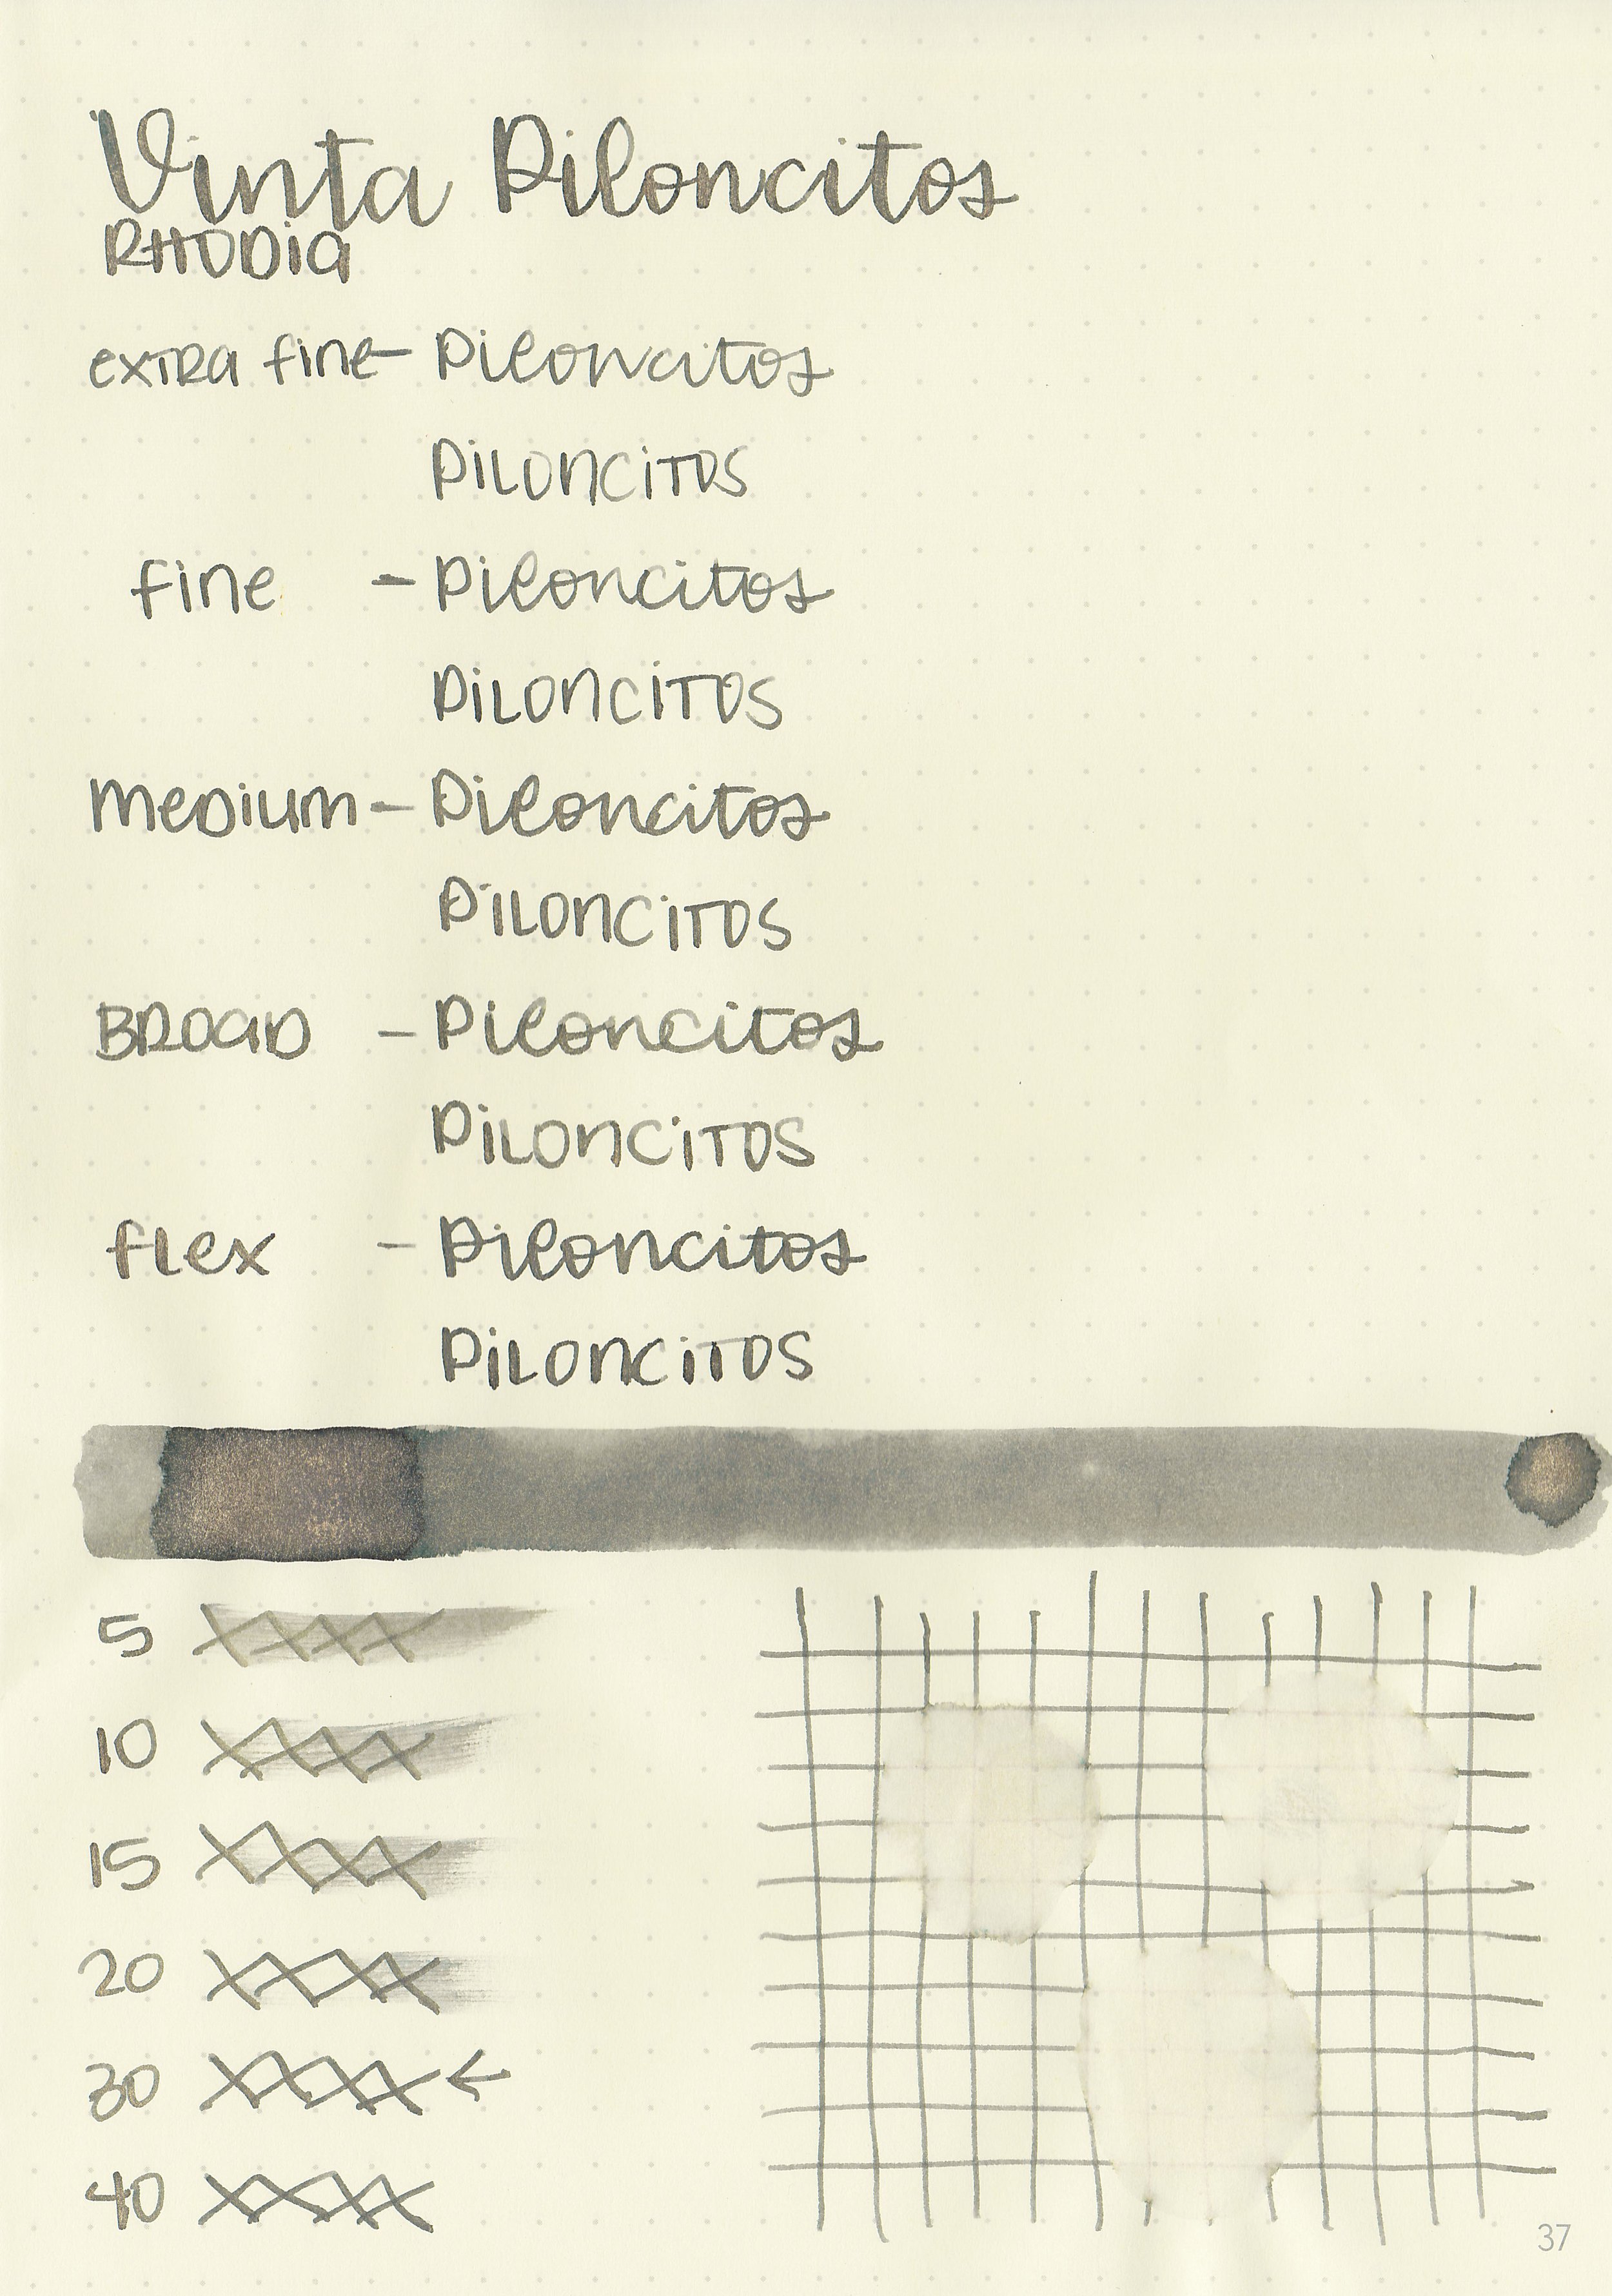 Vinta Piloncitos
RHODia
extra fine - Piloncitos
PiLONCiTOS
fine - Piloncitos
PiLONCiTOS
medium - Piloncitos
PiLONCiTOS
BROAD - Piloncitos
PiLONCiTOS
flex - Piloncitos
PiLONCiTOS
5 XXXX
10 XXXX
15 XXXX
20 XXXX
30 XXXX ←
40 XXXX
37